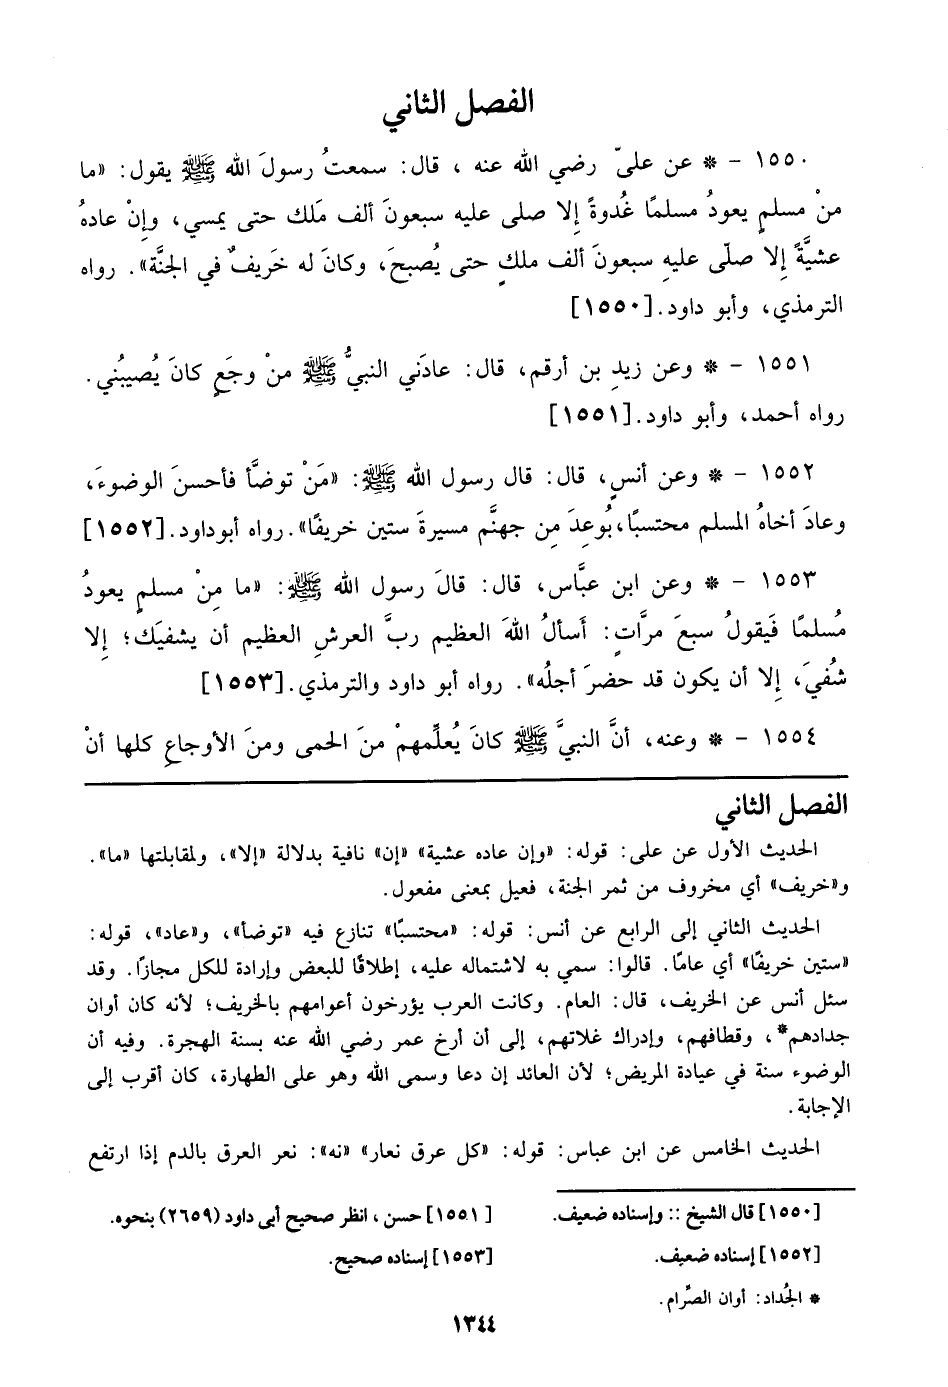 الفصل الثاني
١٥٥٠ – * عن عليّ رضي الله عنه ، قال: سمعتُ رسولَ الله ﷺ يقول: «ما
منْ مسلمٍ يعودُ مسلمًا غُدوةً إِلا صلى عليه سبعونَ ألف مَلك حتى يمسي، وإِنْ عادهُ
عشيَّةً إِلا صلّى عليهِ سبعونَ ألف ملكٍ حتى يُصبحَ، وكانَ له خَريفٌ في الجنَّة». رواه
الترمذي، وأبو داود.[١٥٥٠]
١٥٥١ – * وعن زيدِ بن أرقم، قال: عادَني النبيُّ ﷺ منْ وجَعٍ كانَ يُصيبُني.
رواه أحمد، وأبو داود.[١٥٥١]
١٥٥٢ – * وعن أنسٍ، قال: قال رسول الله ﷺ: «مَنْ توضَّأ فأحسنَ الوضوءَ،
وعادَ أخاهُ المسلم محتسبًا،بُوعِدَ مِن جهنَّم مسيرةَ ستين خريفًا».رواه أبوداود.[١٥٥٢]
١٥٥٣ – * وعن ابن عبَّاس، قال: قالَ رسول الله ﷺ: «ما مِنْ مسلمٍ يعودُ
مُسلمًا فَيقولُ سبعَ مرَّاتٍ: أَسألُ اللهَ العظيم ربَّ العرشِ العظيم أن يشفيَك؛ إِلا
شُفيَ، إِلا أن يكون قد حضرَ أجلُه». رواه أبو داود والترمذي.[١٥٥٣]
١٥٥٤ – * وعنه، أنَّ النبيَّ ﷺ كانَ يُعلِّمهمْ منَ الحمى ومنَ الأوجاعِ كلها أنْ
الفصل الثاني
الحديث الأول عن على: قوله: «وإن عاده عشية» «إن» نافية بدلالة «إلا»، ولمقابلتها «ما».
و«خريف» أي مخروف من ثمر الجنة، فعيل بمعنى مفعول.
الحديث الثاني إلى الرابع عن أنس: قوله: «محتسبًا» تنازع فيه «توضأ»، و«عاد»، قوله:
«ستين خريفًا» أي عامًا. قالوا: سمي به لاشتماله عليه، إطلاقًا للبعض وإرادة للكل مجازًا. وقد
سئل أنس عن الخريف، قال: العام. وكانت العرب يؤرخون أعوامهم بالخريف؛ لأنه كان أوان
جدادهم*، وقطافهم، وإدراك غلاتهم، إلى أن أرخ عمر رضي الله عنه بسنة الهجرة. وفيه أن
الوضوء سنة في عيادة المريض؛ لأن العائد إن دعا وسمى الله وهو على الطهارة، كان أقرب إلى
الإجابة.
الحديث الخامس عن ابن عباس: قوله: «كل عرق نعار» «نه»: نعر العرق بالدم إذا ارتفع
[١٥٥٠] قال الشيخ :: وإسناده ضعيف.
[١٥٥١] حسن ، انظر صحيح أبى داود (٢٦٥٩) بنحوه.
[١٥٥٢] إسناده ضعيف.
[١٥٥٣] إسناده صحيح.
* الجُداد: أوان الصِّرام.
١٣٤٤